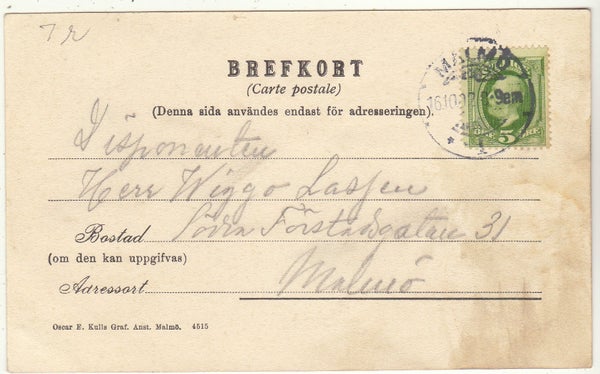 7 r
BREFKORT
MALMÖ
(Carte postale)
(Denna sida användes endast för adresseringen).
16.10.02 9em
ÖRE 5 ÖRE
* 1
Disponenten
Herr Wiggo Lassen
Bostad Södra Förstadsgatan 31
(om den kan uppgifvas)
Malmö
Adressort
Oscar E. Kulls Graf. Anst. Malmö. 4515